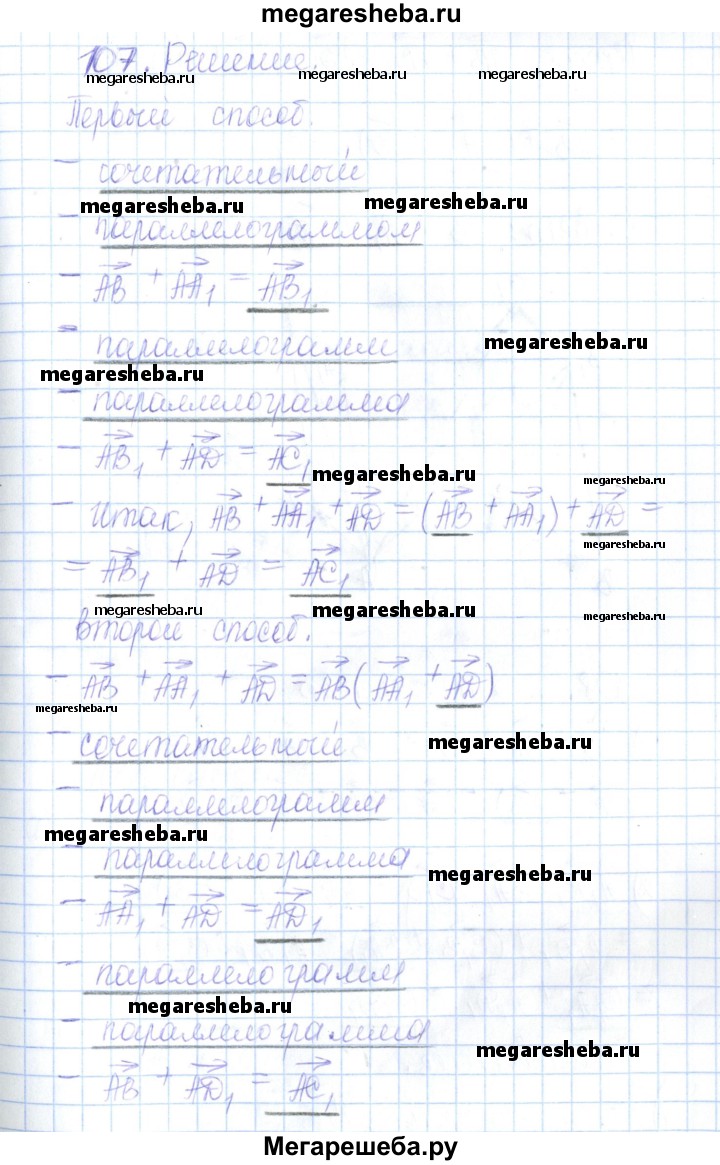 megaresheba.ru
107. Решение.
megaresheba.ru megaresheba.ru megaresheba.ru
Первый способ.
– сочетательный
megaresheba.ru megaresheba.ru
– параллелограммом
– AB + AA₁ = AB₁.
– параллелограмм
megaresheba.ru
megaresheba.ru
– параллелограмма
– AB₁ + AD = AC₁
megaresheba.ru
megaresheba.ru
– Итак, AB + AA₁ + AD = (AB + AA₁) + AD =
megaresheba.ru
= AB₁ + AD = AC₁
megaresheba.ru megaresheba.ru megaresheba.ru
Второй способ.
– AB + AA₁ + AD = AB(AA₁ + AD)
megaresheba.ru
– сочетательный
megaresheba.ru
– параллелограмм
megaresheba.ru
– параллелограмма
megaresheba.ru
– AA₁ + AD = AD₁
– параллелограмм
megaresheba.ru
– параллелограмма
megaresheba.ru
– AB + AD₁ = AC₁
Мегарешеба.ру